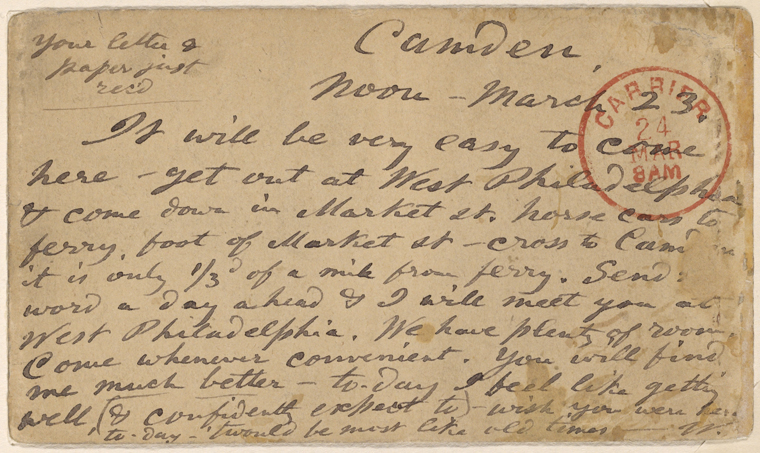 Your letter &
paper just
rec'd
Camden,
Noon - March 23.
CARRIER
24
MAR
8AM
It will be very easy to come
here - get out at West Philadelphia
& come down in Market st. horse cars to
ferry, foot of Market st - cross to Camden
it is only 1/3d of a mile from ferry. Send
word a day ahead & I will meet you at
West Philadelphia. We have plenty of room.
Come whenever convenient. You will find
me much better - to-day I feel like getting
well, (& confidently expect to) - wish you were here
to-day - 'twould be most like old times - W.